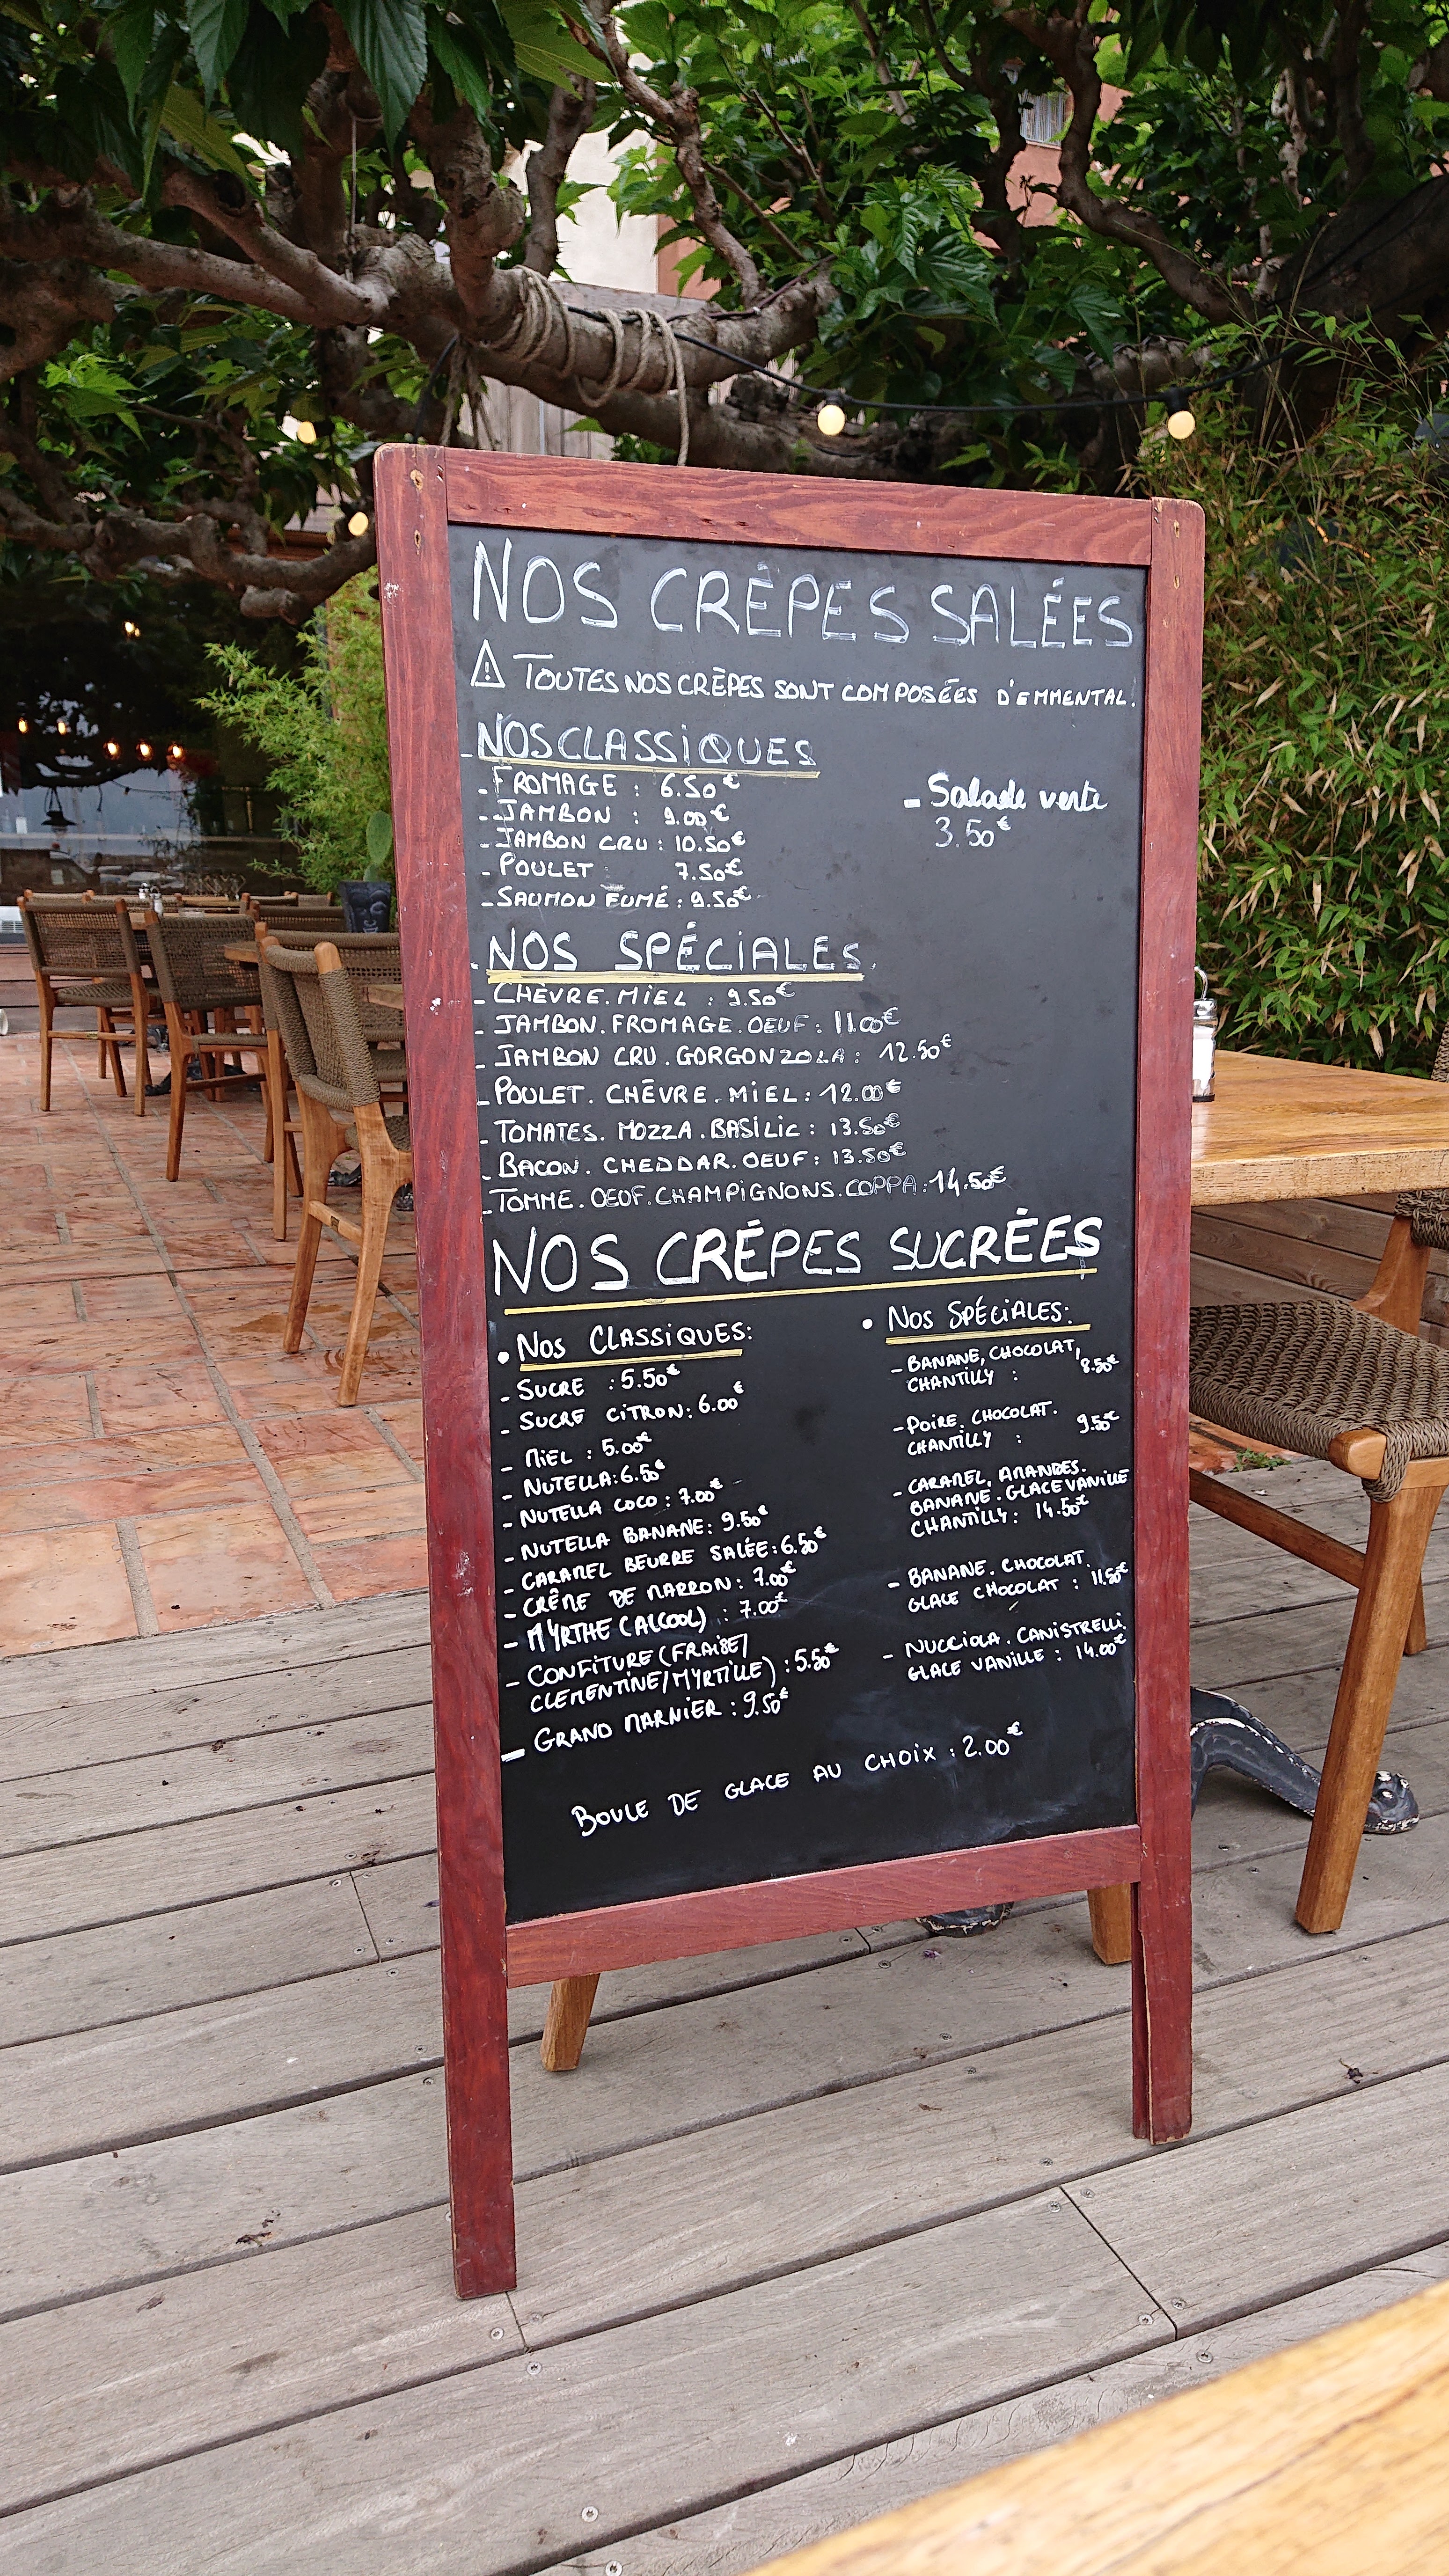 NOS CRÊPES SALÉES
⚠ TOUTES NOS CRÊPES SONT COMPOSÉES D'EMMENTAL.
- NOS CLASSIQUES
- FROMAGE : 6.50€
- JAMBON : 9.00€
- JAMBON CRU : 10.50€
- POULET : 7.50€
- SAUMON FUMÉ : 9.50€
- Salade verte
3.50€
- NOS SPÉCIALES
- CHÈVRE.MIEL : 9.50€
- JAMBON.FROMAGE.OEUF : 11.00€
- JAMBON CRU.GORGONZOLA : 12.50€
- POULET.CHÈVRE.MIEL : 12.00€
- TOMATES.MOZZA.BASILIC : 13.50€
- BACON.CHEDDAR.OEUF : 13.50€
- TOMME.OEUF.CHAMPIGNONS.COPPA : 14.50€
NOS CRÊPES SUCRÉES
• NOS CLASSIQUES:
- SUCRE : 5.50€
- SUCRE CITRON : 6.00€
- MIEL : 5.00€
- NUTELLA : 6.50€
- NUTELLA COCO : 7.00€
- NUTELLA BANANE : 9.50€
- CARAMEL BEURRE SALÉE : 6.50€
- CRÊME DE MARRON : 7.00€
- MYRTHE (ALCOOL) : 7.00€
- CONFITURE (FRAISE/
CLEMENTINE/MYRTILLE) : 5.50€
- GRAND MARNIER : 9.50€
• NOS SPÉCIALES:
- BANANE, CHOCOLAT,
CHANTILLY : 8.50€
- POIRE. CHOCOLAT.
CHANTILLY : 9.50€
- CARAMEL. AMANDES.
BANANE. GLACE VANILLE
CHANTILLY : 14.50€
- BANANE. CHOCOLAT.
GLACE CHOCOLAT : 11.50€
- NUCCIOLA. CANISTRELLI.
GLACE VANILLE : 14.00€
BOULE DE GLACE AU CHOIX : 2.00€